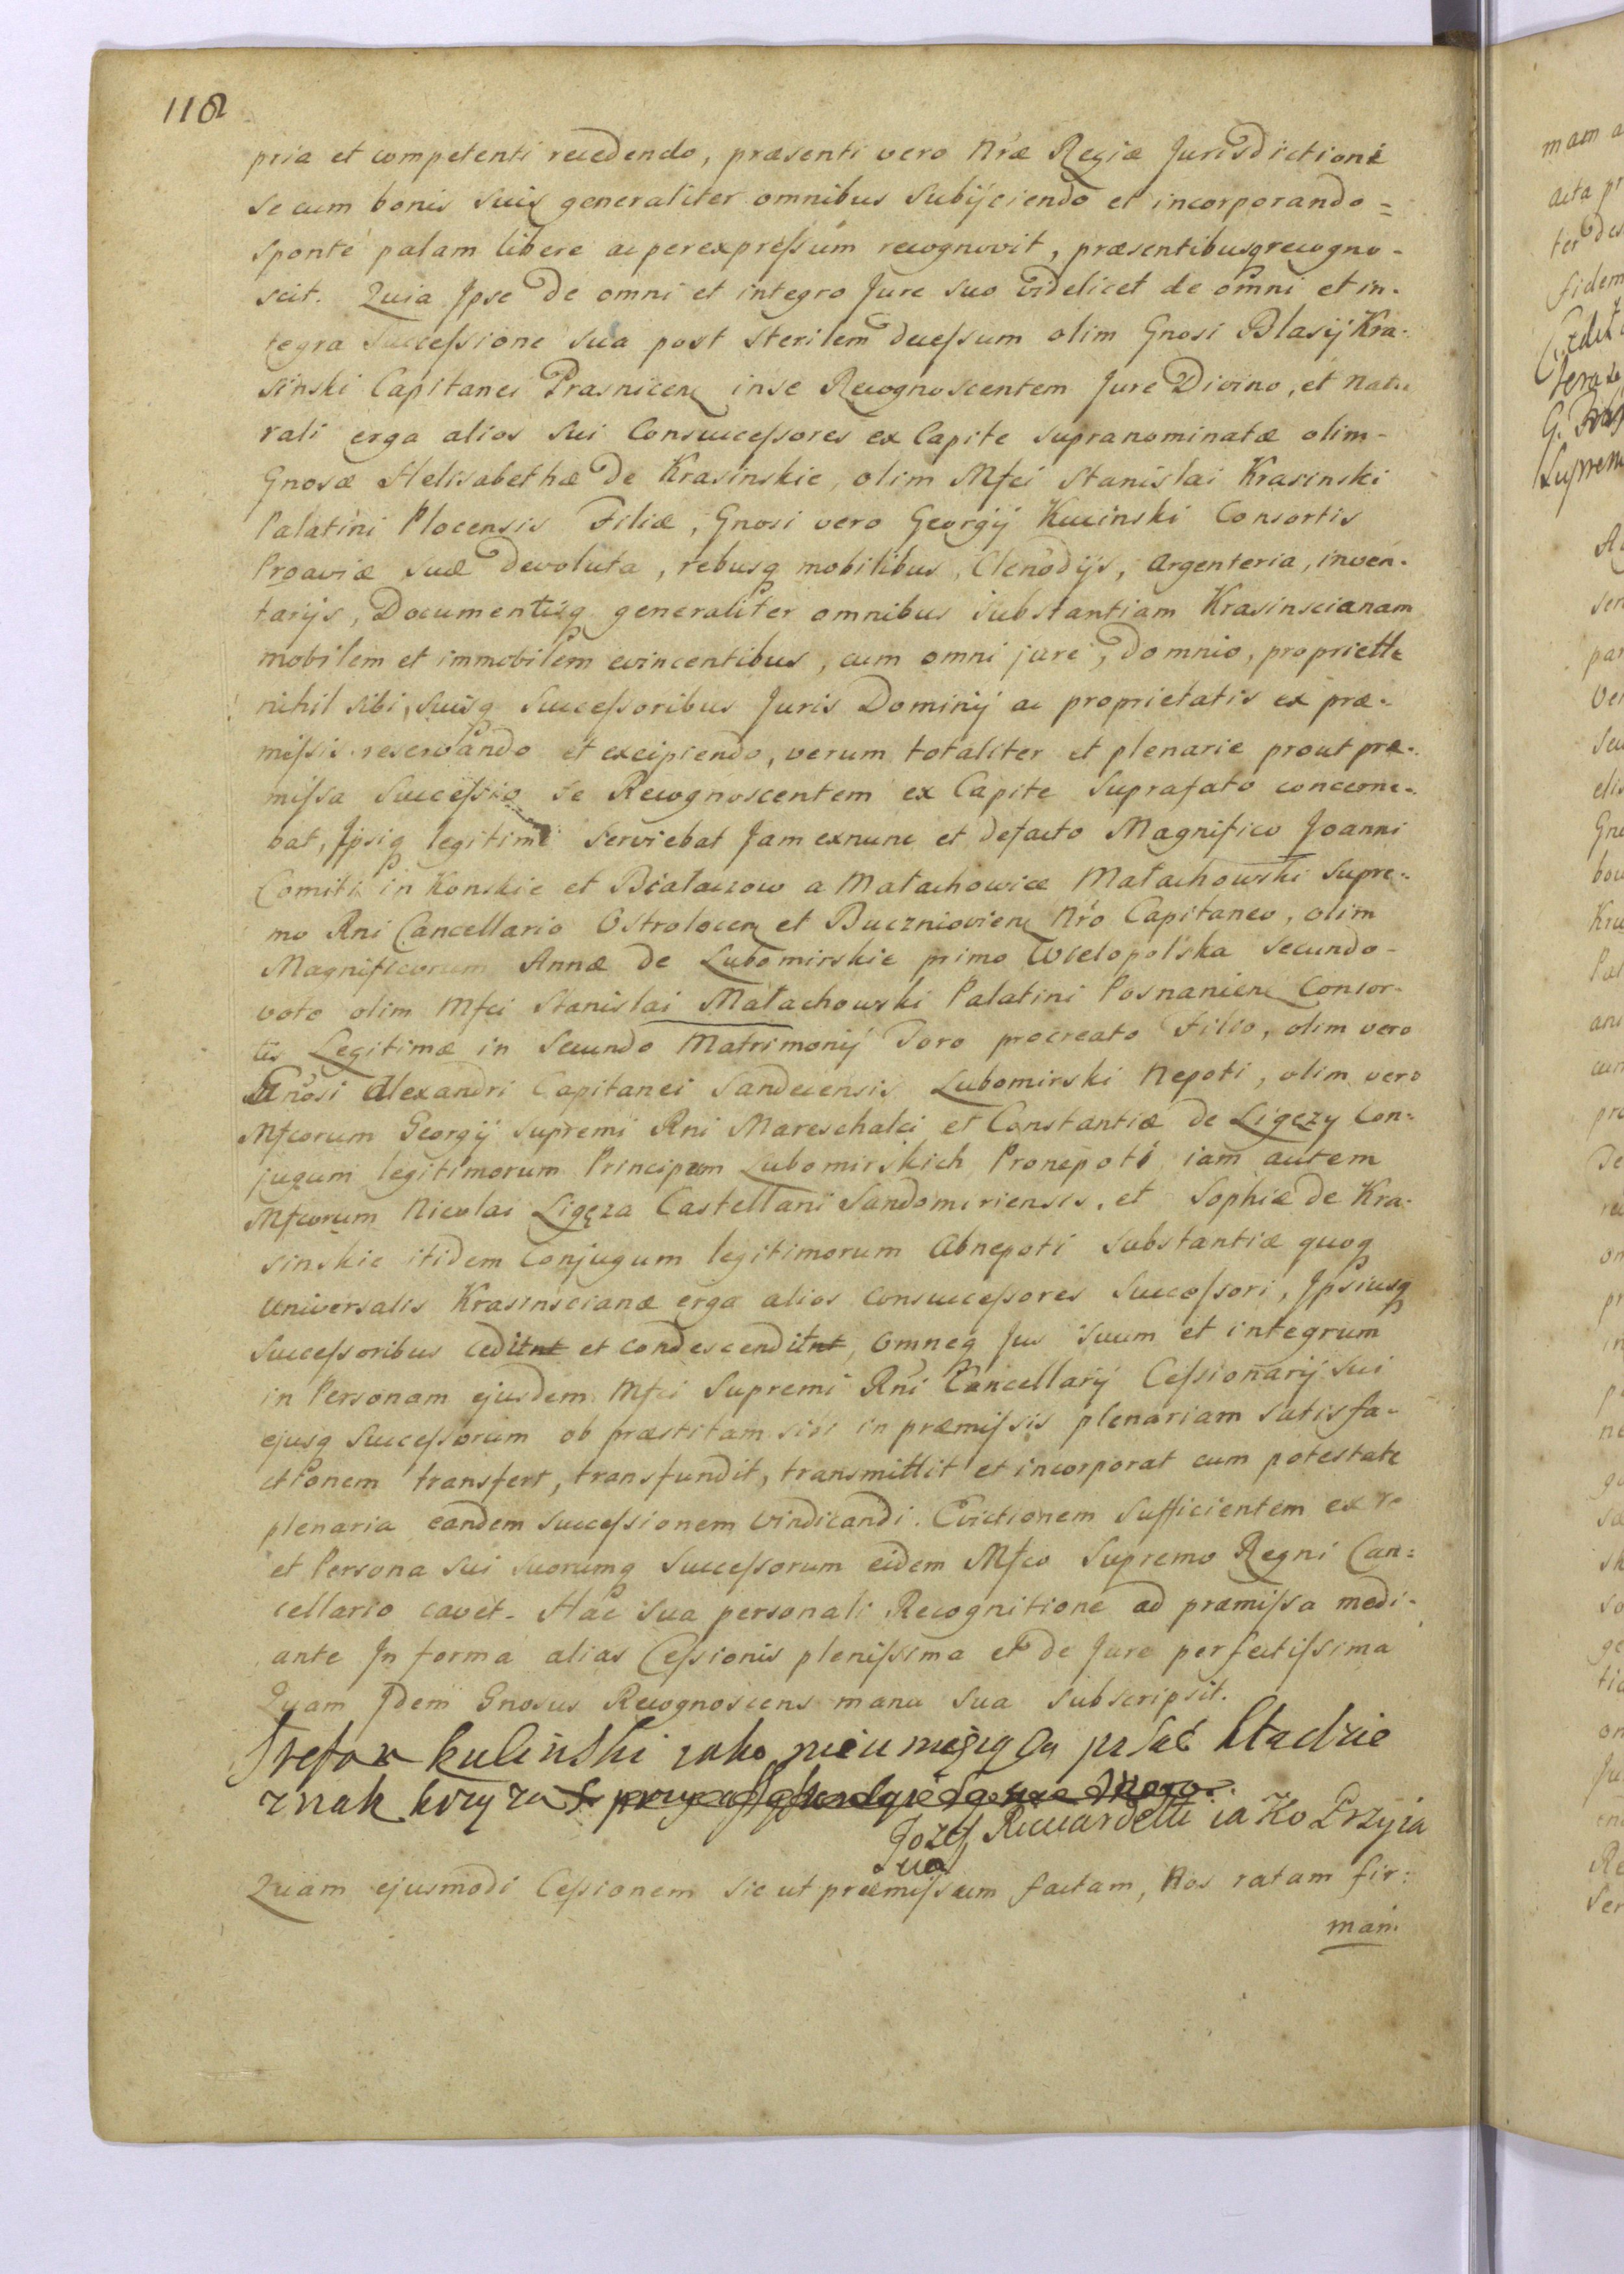 118
pria et competenti recedendo, præsenti vero Nræ Regiæ Jurisdictioni
se cum bonis suis generaliter omnibus subijciendo et incorporando =
sponte palam libere ac per expressum recognovit, præsentibusq recogno -
scit. Quia Ipse de omni et integro Jure suo videlicet de omni et in -
tegra Successione sua post sterilem decessum olim Gnosi Blasij Kra -
sinski Capitanei Prasnicen in se Recognoscentem Jure Divino, et Natu
rali erga alios sui Consuccessores ex Capite supranominatæ olim -
Gnosæ Helisabethæ de Krasinskie, olim Mfci Stanislai Krasinski
Palatini Plocensis Filiæ, Gnosi vero Georgij Kucinski Consortis
Proaviæ suæ devoluta, rebusq mobilibus, Clenodijs, Argenteria, inven -
tarijs, Documentisq generaliter omnibus substantiam Krasinscianam
mobilem et immobilem evincentibus, cum omni jure, domnio, propriette
nihil sibi, suisq Successoribus Juris Dominij ac proprietatis ex præ -
missis reservando et excipiendo, verum totaliter et plenarie prout præ -
missa Successio se Recognoscentem ex Capite suprafato concerne -
bat, Ipsiq legitime serviebat Jam exnunc et defacto Magnifico Joanni
Comiti in Konskie et Białaczow a Małachowice Małachowski Supre -
mo Rni Cancellario Ostrolocen et Buczniovien Nro Capitaneo, olim
Magnificorum Annæ de Lubomirskie primo Wielopolska secundo -
voto olim Mfci Stanislai Małachowski Palatini Posnanien Consor -
tis Legitimæ in Secundo Matrimonij Toro procreato Filio, olim vero
Gnosi Alexandri Capitanei Sandecensis Lubomirski Nepoti, olim vero
Mfcorum Georgij Supremi Rni Mareschalci et Constantiæ de Ligęzy Con =
jugum legitimorum Principum Lubomirskich Pronepoti iam autem
Mfcorum Nicolai Ligęza Castellani Sandomiriensis, et Sophiæ de Kra -
sinskie itidem Conjugum legitimorum Abnepoti substantiæ quoq
Universalis Krasinscianæ erga alios Consuccessores Successori, Ipsiusq
Successoribus cedit et condescendit, omneq Jus suum et integrum
in Personam ejusdem Mfci Supremi Rni Cancellarij Cessionarij sui
ejusq Successorum ob præstitam sibi in præmissis plenariam satisfa -
ctionem transfert, transfundit, transmittit et incorporat cum potestate
plenaria eandem successionem vindicandi. Evictionem sufficientem ex re
et Persona sui suorumq Successorum eidem Mfco Supremo Regni Can =
cellario cavet. Hac sua personali Recognitione ad præmissa medi -
ante In forma alias Cessionis plenissima et de Jure perfectissima
Quam Idem Gnosus Recognoscens manu sua subscripsit.
Stefan kulinski iako nieumieiący pisać kładzie
znak krzyza
Jozef Ricciardetti iako Przyia
Quam ejusmodi Cessionem sic ut præmissum factam, Nos ratam fir:
mam